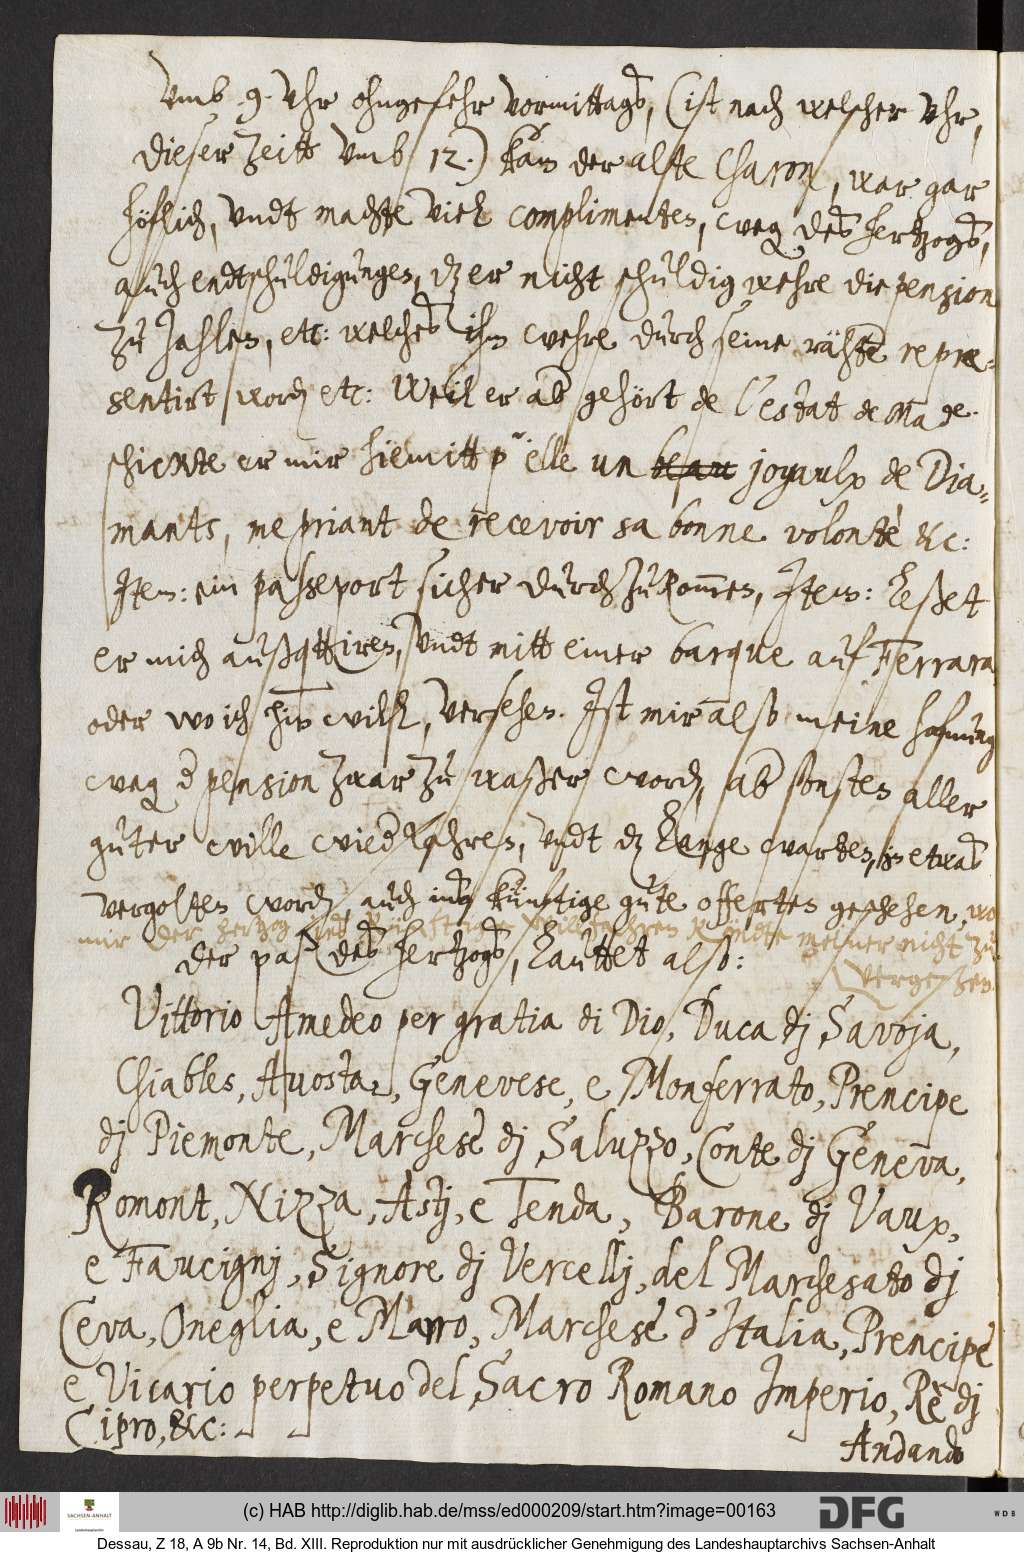 Vmb .9. Vhr ohngefehr vormittags, (ist nach welscher Vhr,
dieser zeitt Vmb 12.) kam der alte Charon, war gar
höflich, Vndt machte viel complimenten, weg des hertzogs,
auch endtschuldigungen, dz er nicht schuldig wehre die pension
zu zahlen, etc: welches ihm wehre durch seine rähte repræ-
sentirt word etc: Weil er ab gehört de l'estat de Ma ge-
schickte er mir hiemitt p elle un beau joyaulx de Dia-
mants, me priant de recevoir sa bonne volontè &c:
Item: ein passeport sicher durchzukommen, Item: leßet
er mich außqttiren, Vndt mitt einer barque auf Ferrara
oder wo ich hin will, versehen. Ist mir also meine hofnung
weg d pension zwar zu waßer word, ab sonsten aller
guter wille wiedfahren, Vndt dz lange warten, in etwas
vergolten word auch ins künftige gute offertes geschehen, wo
mir der hertzog willfahren köndte meiner nicht zu
vergeßen.
der paß des hertzogs, lauttet also:
Vittorio Amedeo per gratia di Dio, Duca dj Savoja,
Chiables, Auosta, Genevese, e Monferrato, Prencipe
dj Piemonte, Marchese dj Saluzzo, Conte dj Geneva,
Romont, Nizza, Astj, e Tenda, Barone dj Vaux,
e Faucignj, Signore dj Vercellj, del Marchesato dj
Ceva, Oneglia, e Marro, Marchese d'Italia, Prencipe
e Vicario perpetuo del Sacro Romano Imperio, Rè dj
Cipro, &c:
Andando
SACHSEN-ANHALT
(c) HAB http://diglib.hab.de/mss/ed000209/start.htm?image=00163
DFG
WDB
Dessau, Z 18, A 9b Nr. 14, Bd. XIII. Reproduktion nur mit ausdrücklicher Genehmigung des Landeshauptarchivs Sachsen-Anhalt